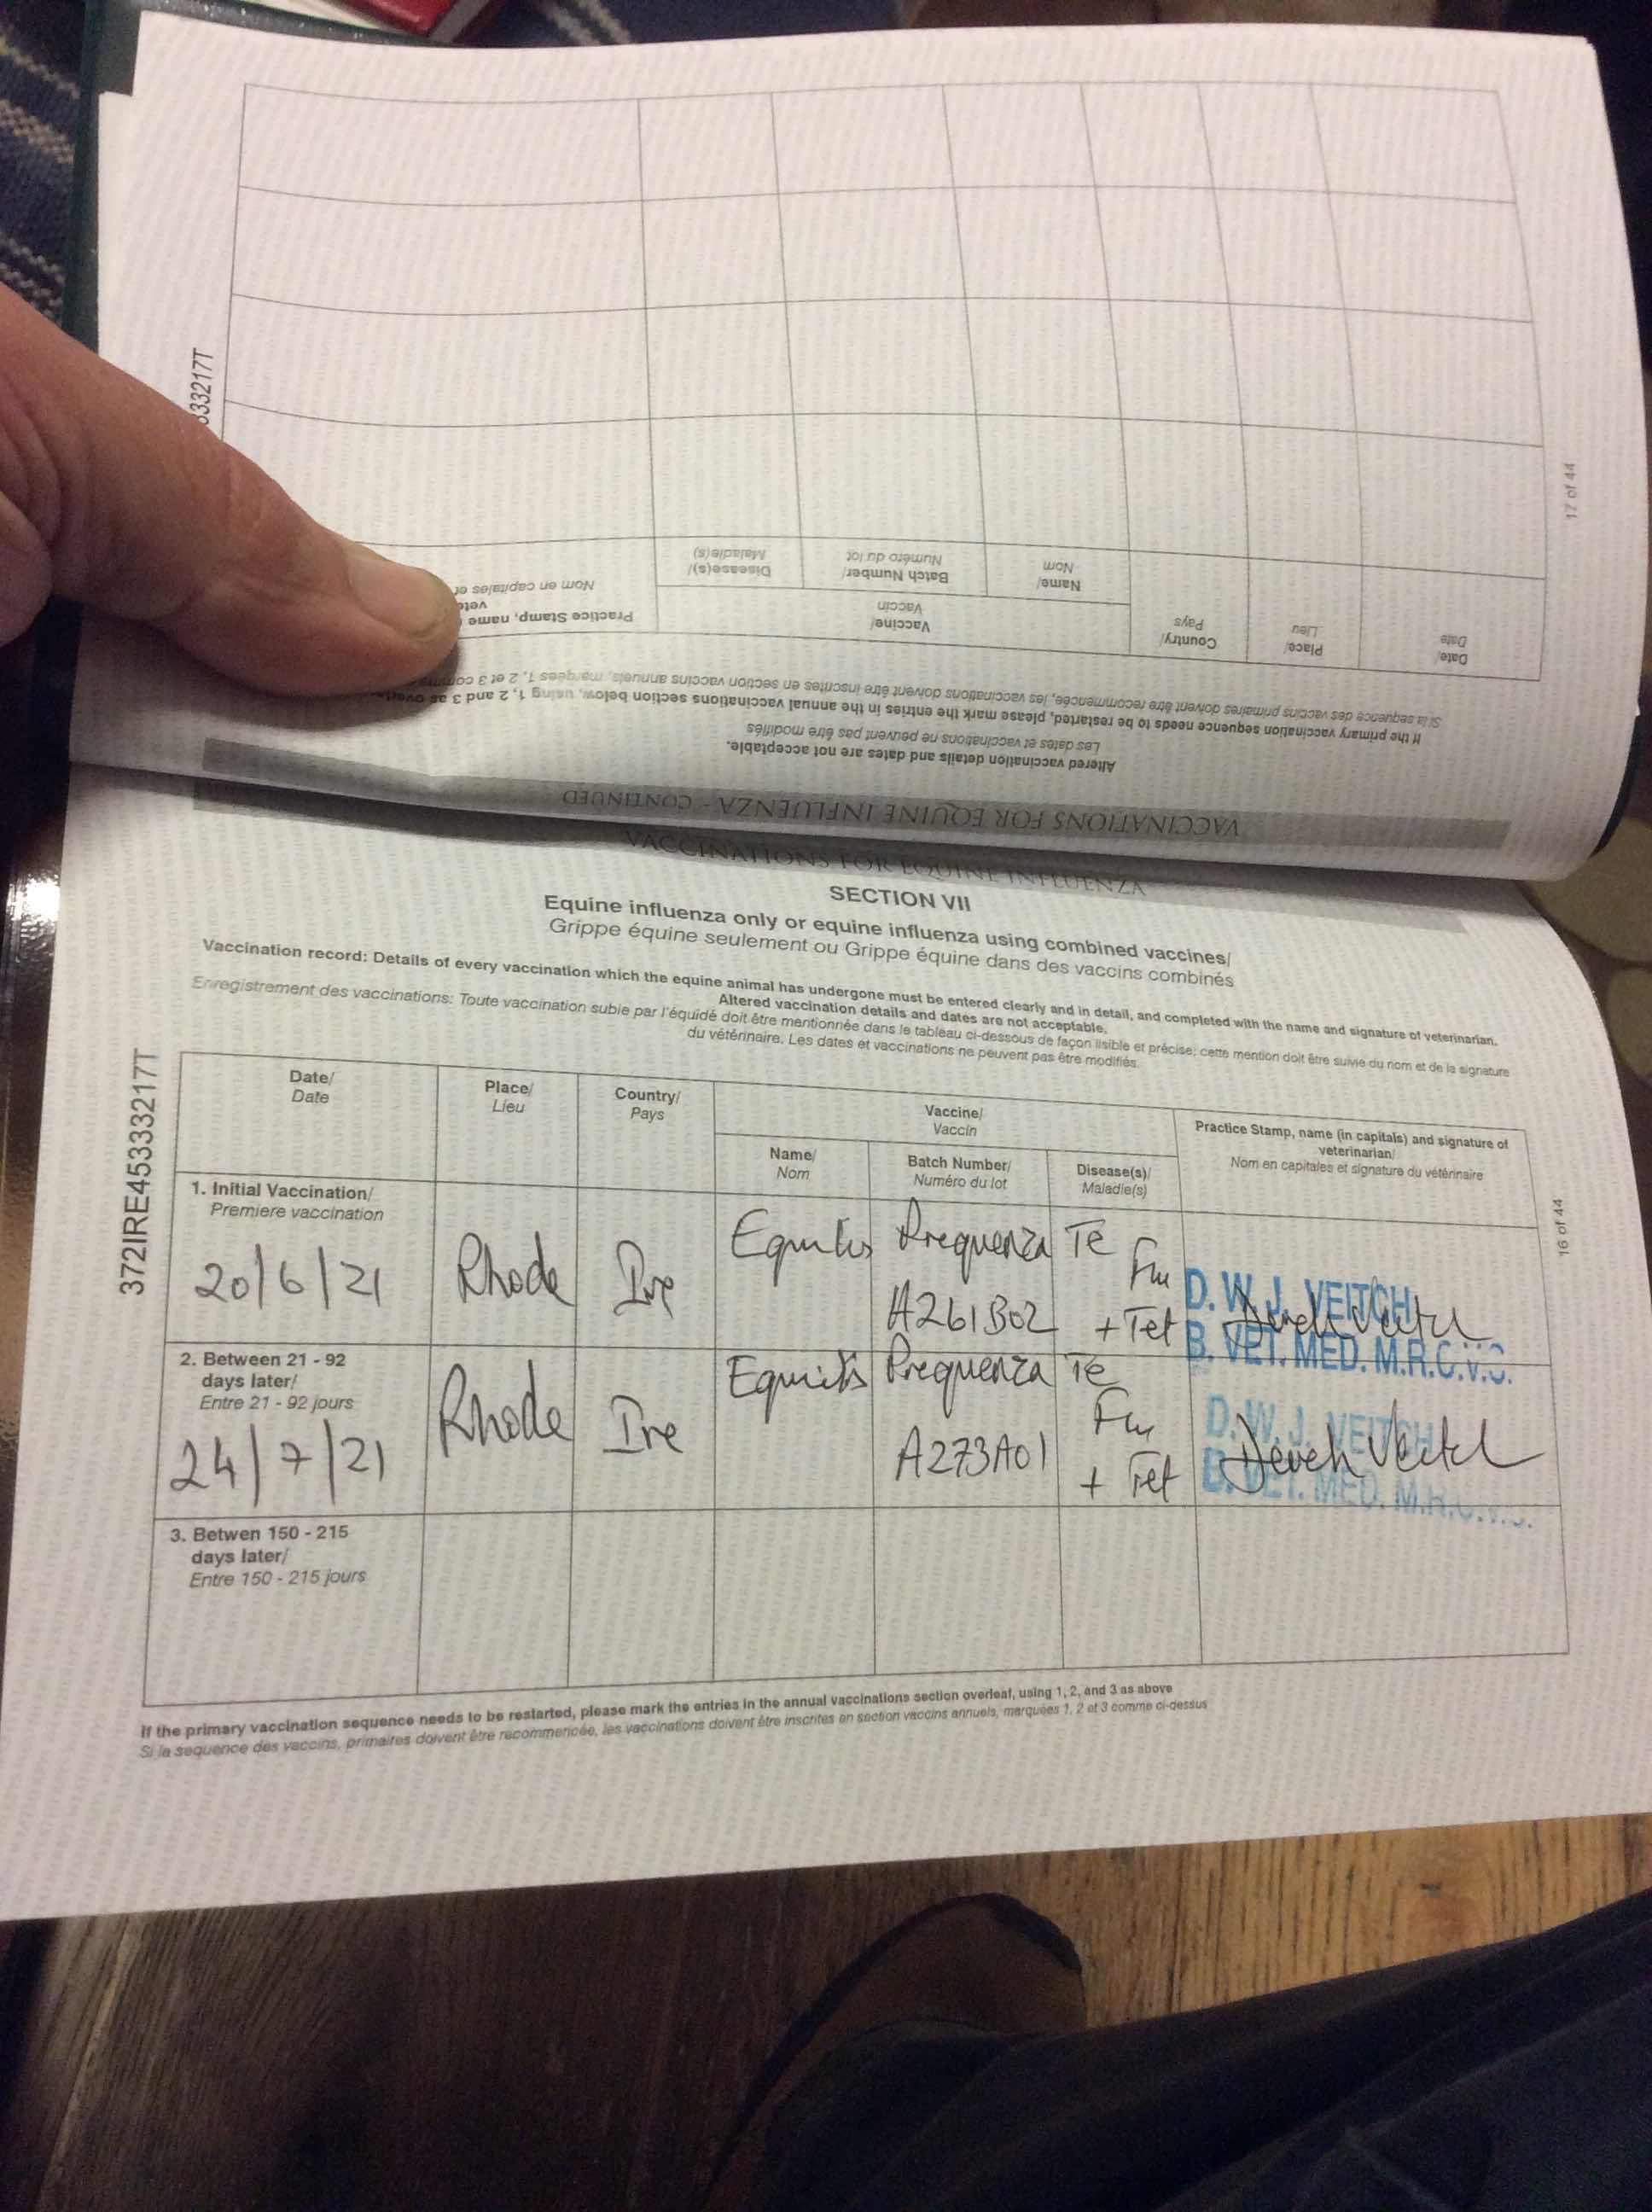 33217T
17 of 44
VACCINATIONS FOR EQUINE INFLUENZA - CONTINUED
Altered vaccination details and dates are not acceptable.
Les dates et vaccinations ne peuvent pas être modifiés
If the primary vaccination sequence needs to be restarted, please mark the entries in the annual vaccinations section below, using 1, 2 and 3 as
Si la sequence des vaccins primaires doivent être recommencée, les vaccinations doivent être inscrites en section vaccins annuels, marquées 1, 2 et 3
Date/
Date
Place/
Lieu
Country/
Pays
Vaccine/
Vaccin
Name/
Nom
Batch Number/
Numéro du lot
Disease(s)/
Maladie(s)
Practice Stamp, name
Nom en capitales et
VACCINATIONS FOR EQUINE INFLUENZA
SECTION VII
Equine influenza only or equine influenza using combined vaccines/
Grippe équine seulement ou Grippe équine dans des vaccins combinés
Vaccination record: Details of every vaccination which the equine animal has undergone must be entered clearly and in detail, and completed with the name and signature of veterinarian.
Altered vaccination details and dates are not acceptable.
Enregistrement des vaccinations: Toute vaccination subie par l'équidé doit être mentionnée dans le tableau ci-dessous de façon lisible et précise; cette mention doit être suivie du nom et de la signature
du vétérinaire. Les dates et vaccinations ne peuvent pas être modifiés.
372IRE45333217T
16 of 44
Date/
Date
Place/
Lieu
Country/
Pays
Vaccine/
Vaccin
Practice Stamp, name (in capitals) and signature of
veterinarian/
Nom en capitales et signature du vétérinaire
Name/
Nom
Batch Number/
Numéro du lot
Disease(s)/
Maladie(s)
1. Initial Vaccination/
Premiere vaccination
20/6/21
Rhode
Ire
Equilis Prequenza Te
A261B02
Flu
+ Tet
D. W. J. VEITCH
B. VET. MED. M.R.C.V.S.
Derek Veitch
2. Between 21 - 92
days later/
Entre 21 - 92 jours
24/7/21
Rhode
Ire
Equilis Prequenza Te
A273A01
Flu
+ Tet
D. W. J. VEITCH
B. VET. MED. M.R.C.V.S.
Derek Veitch
3. Betwen 150 - 215
days later/
Entre 150 - 215 jours
If the primary vaccination sequence needs to be restarted, please mark the entries in the annual vaccinations section overleaf, using 1, 2, and 3 as above
Si la sequence des vaccins, primaires doivent être recommencée, les vaccinations doivent être inscrites en section vaccins annuels, marquées 1, 2 et 3 comme ci-dessus